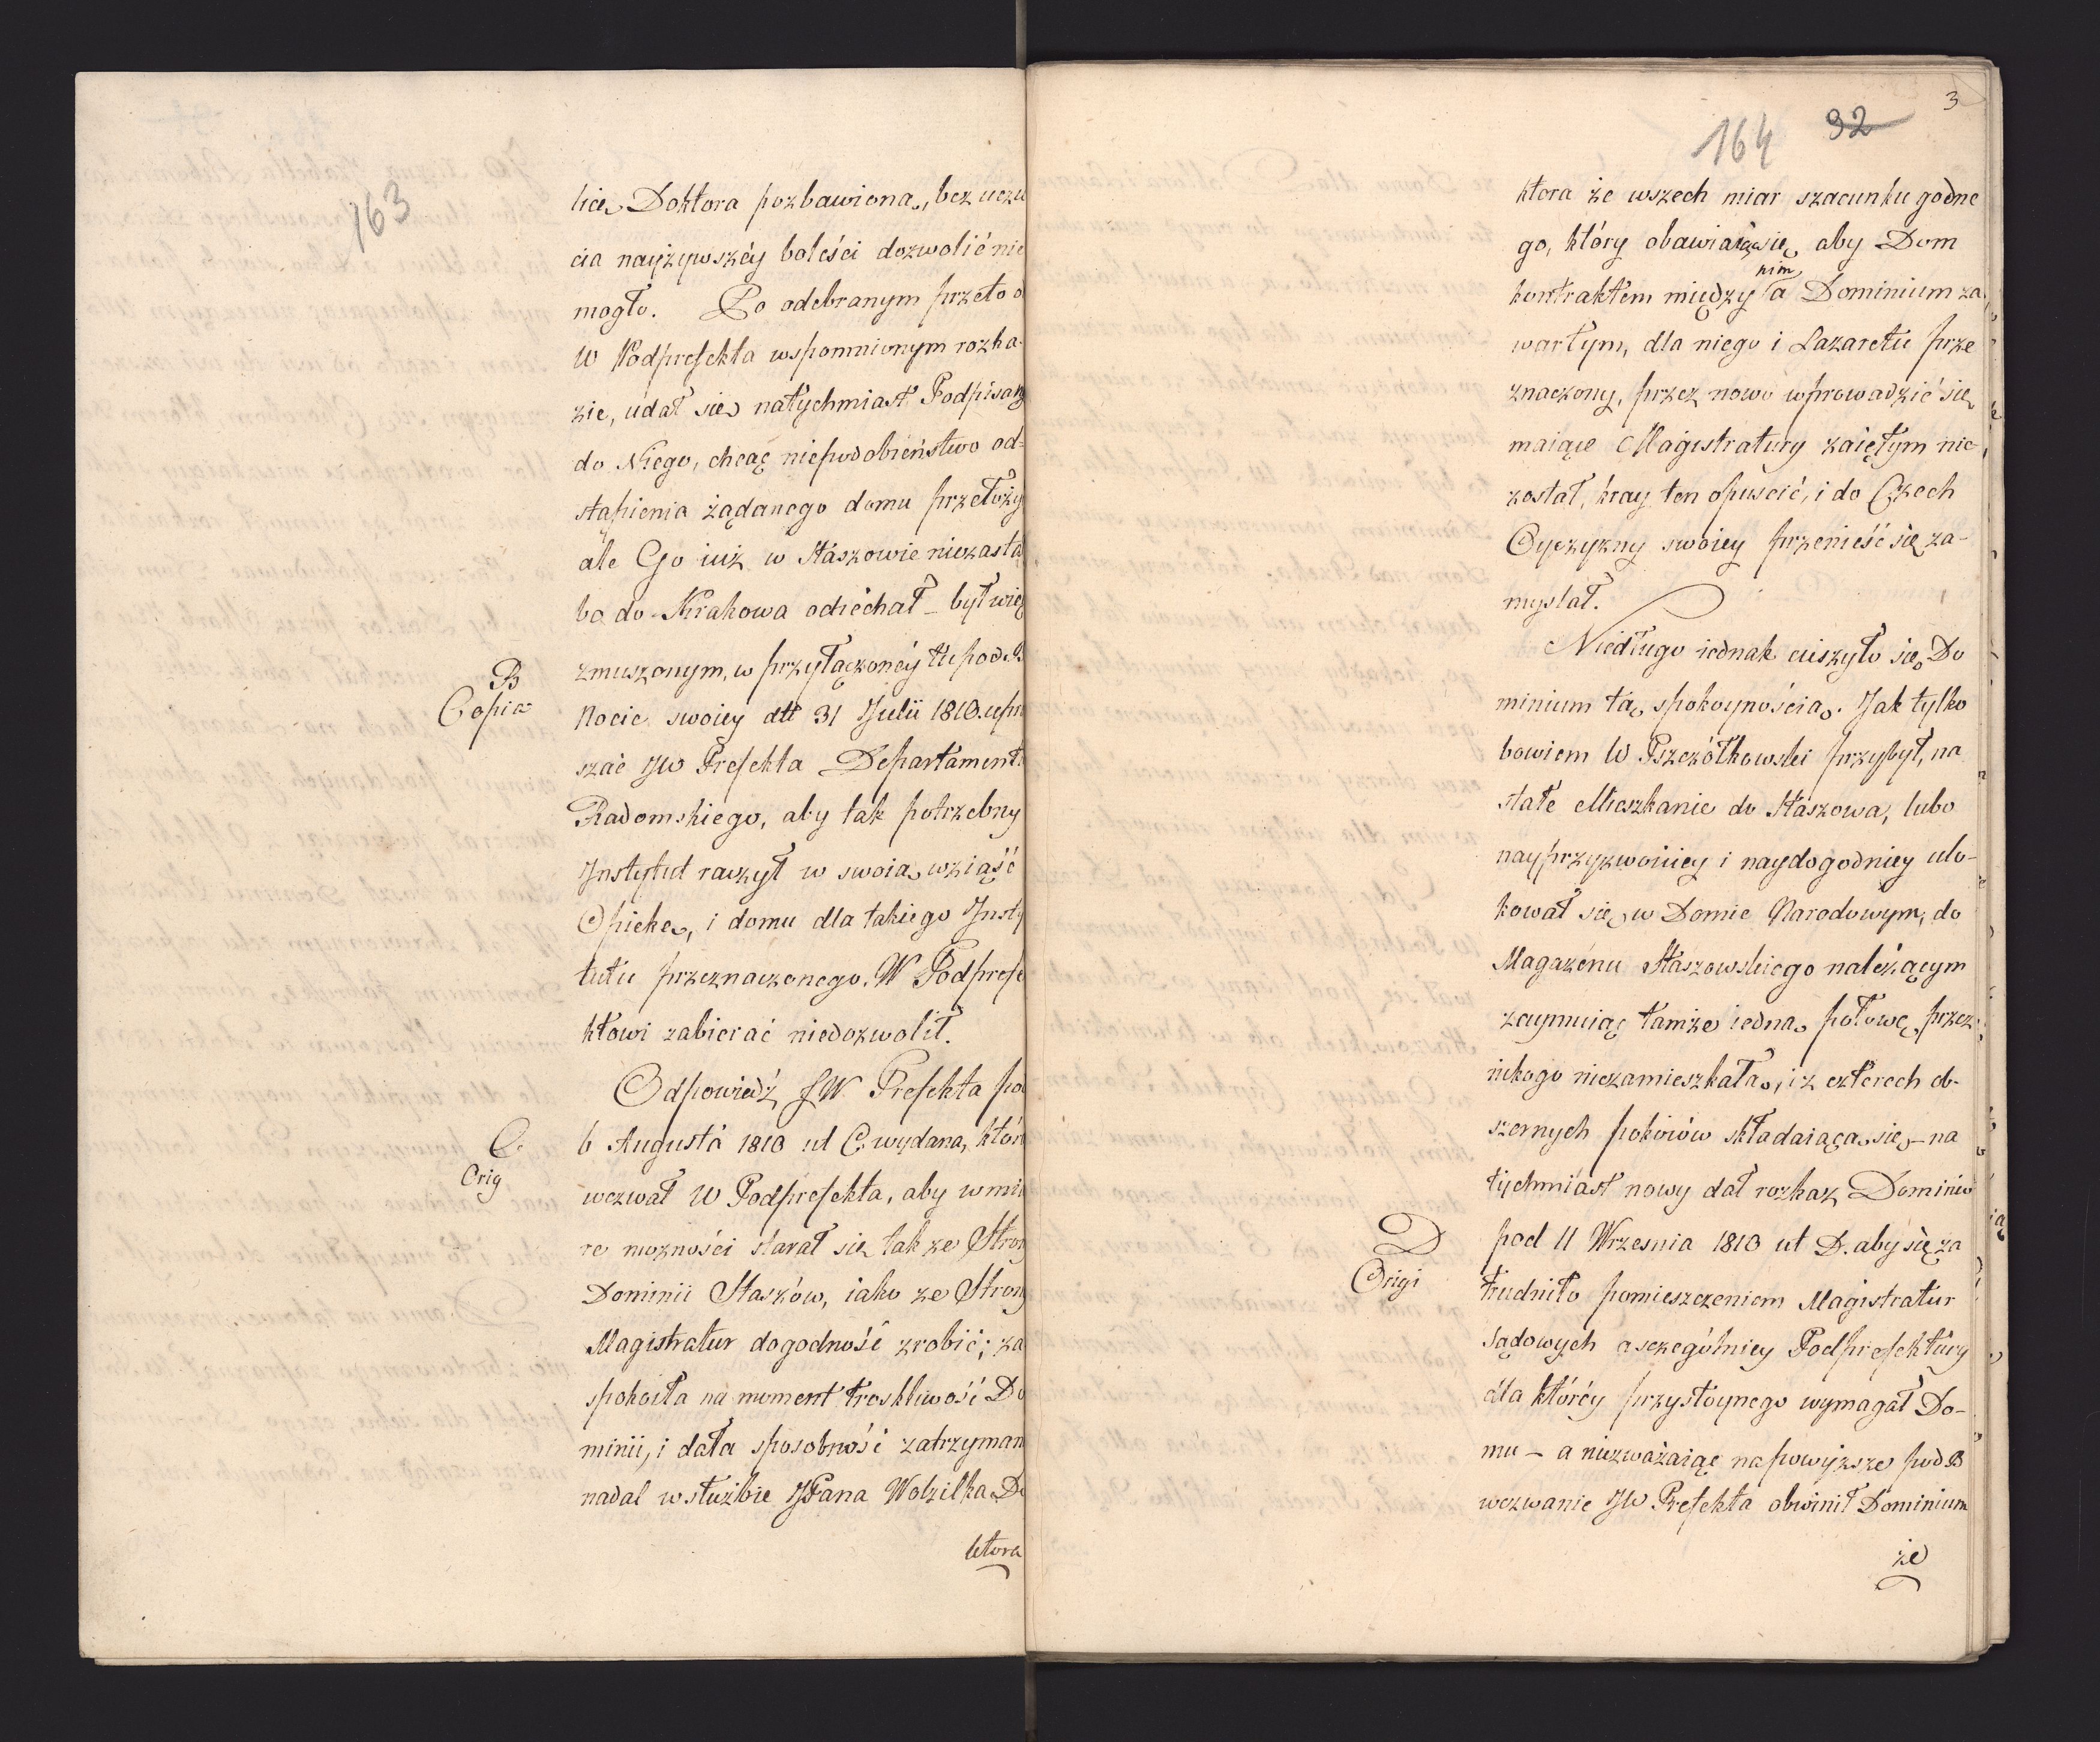 163
licę Doktora pozbawioną, bez uczu
cia nayżywszéy boleści dozwolić nie
mogło. Po odebranym przeto o
W Podprefekta wspomnionym rozka-
zie, udał się natychmiast Podpisany
do Niego, chcąc niepodobieństwo od-
stąpienia żądanego domu przełoży
ale Go iuż w Staszowie niezastał
bo do Krakowa odiechał – był więc
B
Copia
zmuszonym, w przyłączonéy tu pod B
Nocie swoiey dtt 31 Julii 1810. upra
szać JW Prefekta Departamentu
Radomskiego, aby tak potrzebny
Jnstytut raczył w swoią wziąść
Opiekę, i domu dla takiego Jnsty
tutu przeznaczonego. W Podprefe
ktowi zabierać niedozwolił.
Odpowiedź JW Prefekta pod
C
Orig
6 Augusta 1810 ut C. wydana, któr
wezwał W Podprefekta, aby w mia
rę możności starał się tak ze Stron
Dominii Staszów, iako ze Strony
Magistratur dogodność zrobić; za
spokoiła na moment troskliwość Do
minii, i dała sposobność zatrzyman
nadal w służbie JPana Wolzilka Do
ktora
3
164 92
ktora ze wszech miar szacunku godne
go, który obawiaiąc się, aby Dom
kontraktem między nim a Dominium za
wartym, dla niego i Lazaretu prze
znaczony, przez nowo wprowadzić się
maiące Magistratury zaiętym nie
został, kray ten opuscić, i do Czech
Oyczyzny swoiey przenieść się za-
myslał.
Niedługo iednak cieszyło się Do
minium tą spokoynością. Jak tylko
bowiem W Pszczółkowski przybył, na
stałe Mieszkanie do Staszowa, lubo
nayprzyzwoiciey i naydogodniey ulo-
kował się w Domie Narodowym, do
Magazenu Staszowskiego należącym
zaymuiąc tamże iedną połowę, przez
nikogo niezamieszkałą, i z czterech ob-
szernych pokoiów składaiącą się – na
tychmiast nowy dał rozkaz Dominio
D
Origi
pod 11 Wrzesnia 1810 ut D. aby się za
trudniło pomieszczeniem Magistratur
Sądowych a sczególniey Podprefektury
dla któréy przystoynego wymagał Do-
mu – a niezważaiąc na powyższe pod B
wezwanie JW Prefekta obwinił Dominium
że